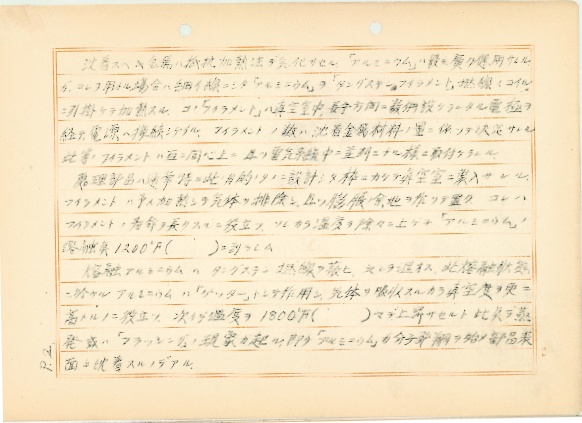 沈着スベキ金属ハ抵抗加熱法デ気化サセル.「アルミニウム」ハ最モ廣ク使用サレル
ガ、コレヲ用ヒル場合ハ細イ線ニシタ「アルミニウム」ヲ「タングステン フィラメント」燃線ノコイル
ニ引掛ケテ加熱スル. コノ「フィラメント」ハ真空室中 長手方向ニ数個設ケラレタル電極ヲ
経テ電源ヘ接続シテヰル. フィラメントノ数ハ沈着金属材料ノ量ニ依ツテ決定サレル
此等ノフィラメントハ互ニ同心上ニ 且ツ電気系統中ニ並列ニナル様ニ取付ケラレル.
処理部品ハ通常特ニ此ノ目的ノタメニ設計シタ枠ニカケテ真空室ニ装入サレル.
フィラメントハ 加熱シテ気体ヲ排除シ、且ツ膨脹余地ヲ作ツテ置ク コレハ
フィラメントノ寿命ヲ長クスルニ役立ツ. ソレカラ温度ヲ除々ニ上ゲテ「アルミニウム」ノ
熔融点 1200°F( )ニ到ラシム
熔融アルミニウムハ タングステン 燃線ヲ 此ノ熔融状態
ニ於ケル アルミニウムハ「ゲッター」トシテ作用シ、気体ヲ吸収スルカラ真空度ヲ更ニ
高メルノニ役立ツ. 次イデ温度ヲ 1800°F( )マデ上昇サセルト 此処ニ蒸
発或ハ「フラッシング」ノ現象ガ起ル. 即チ「アルミニウム」ガ分子 ヲ始メ部品表
面ニ沈着スルノデアル.
P.2.